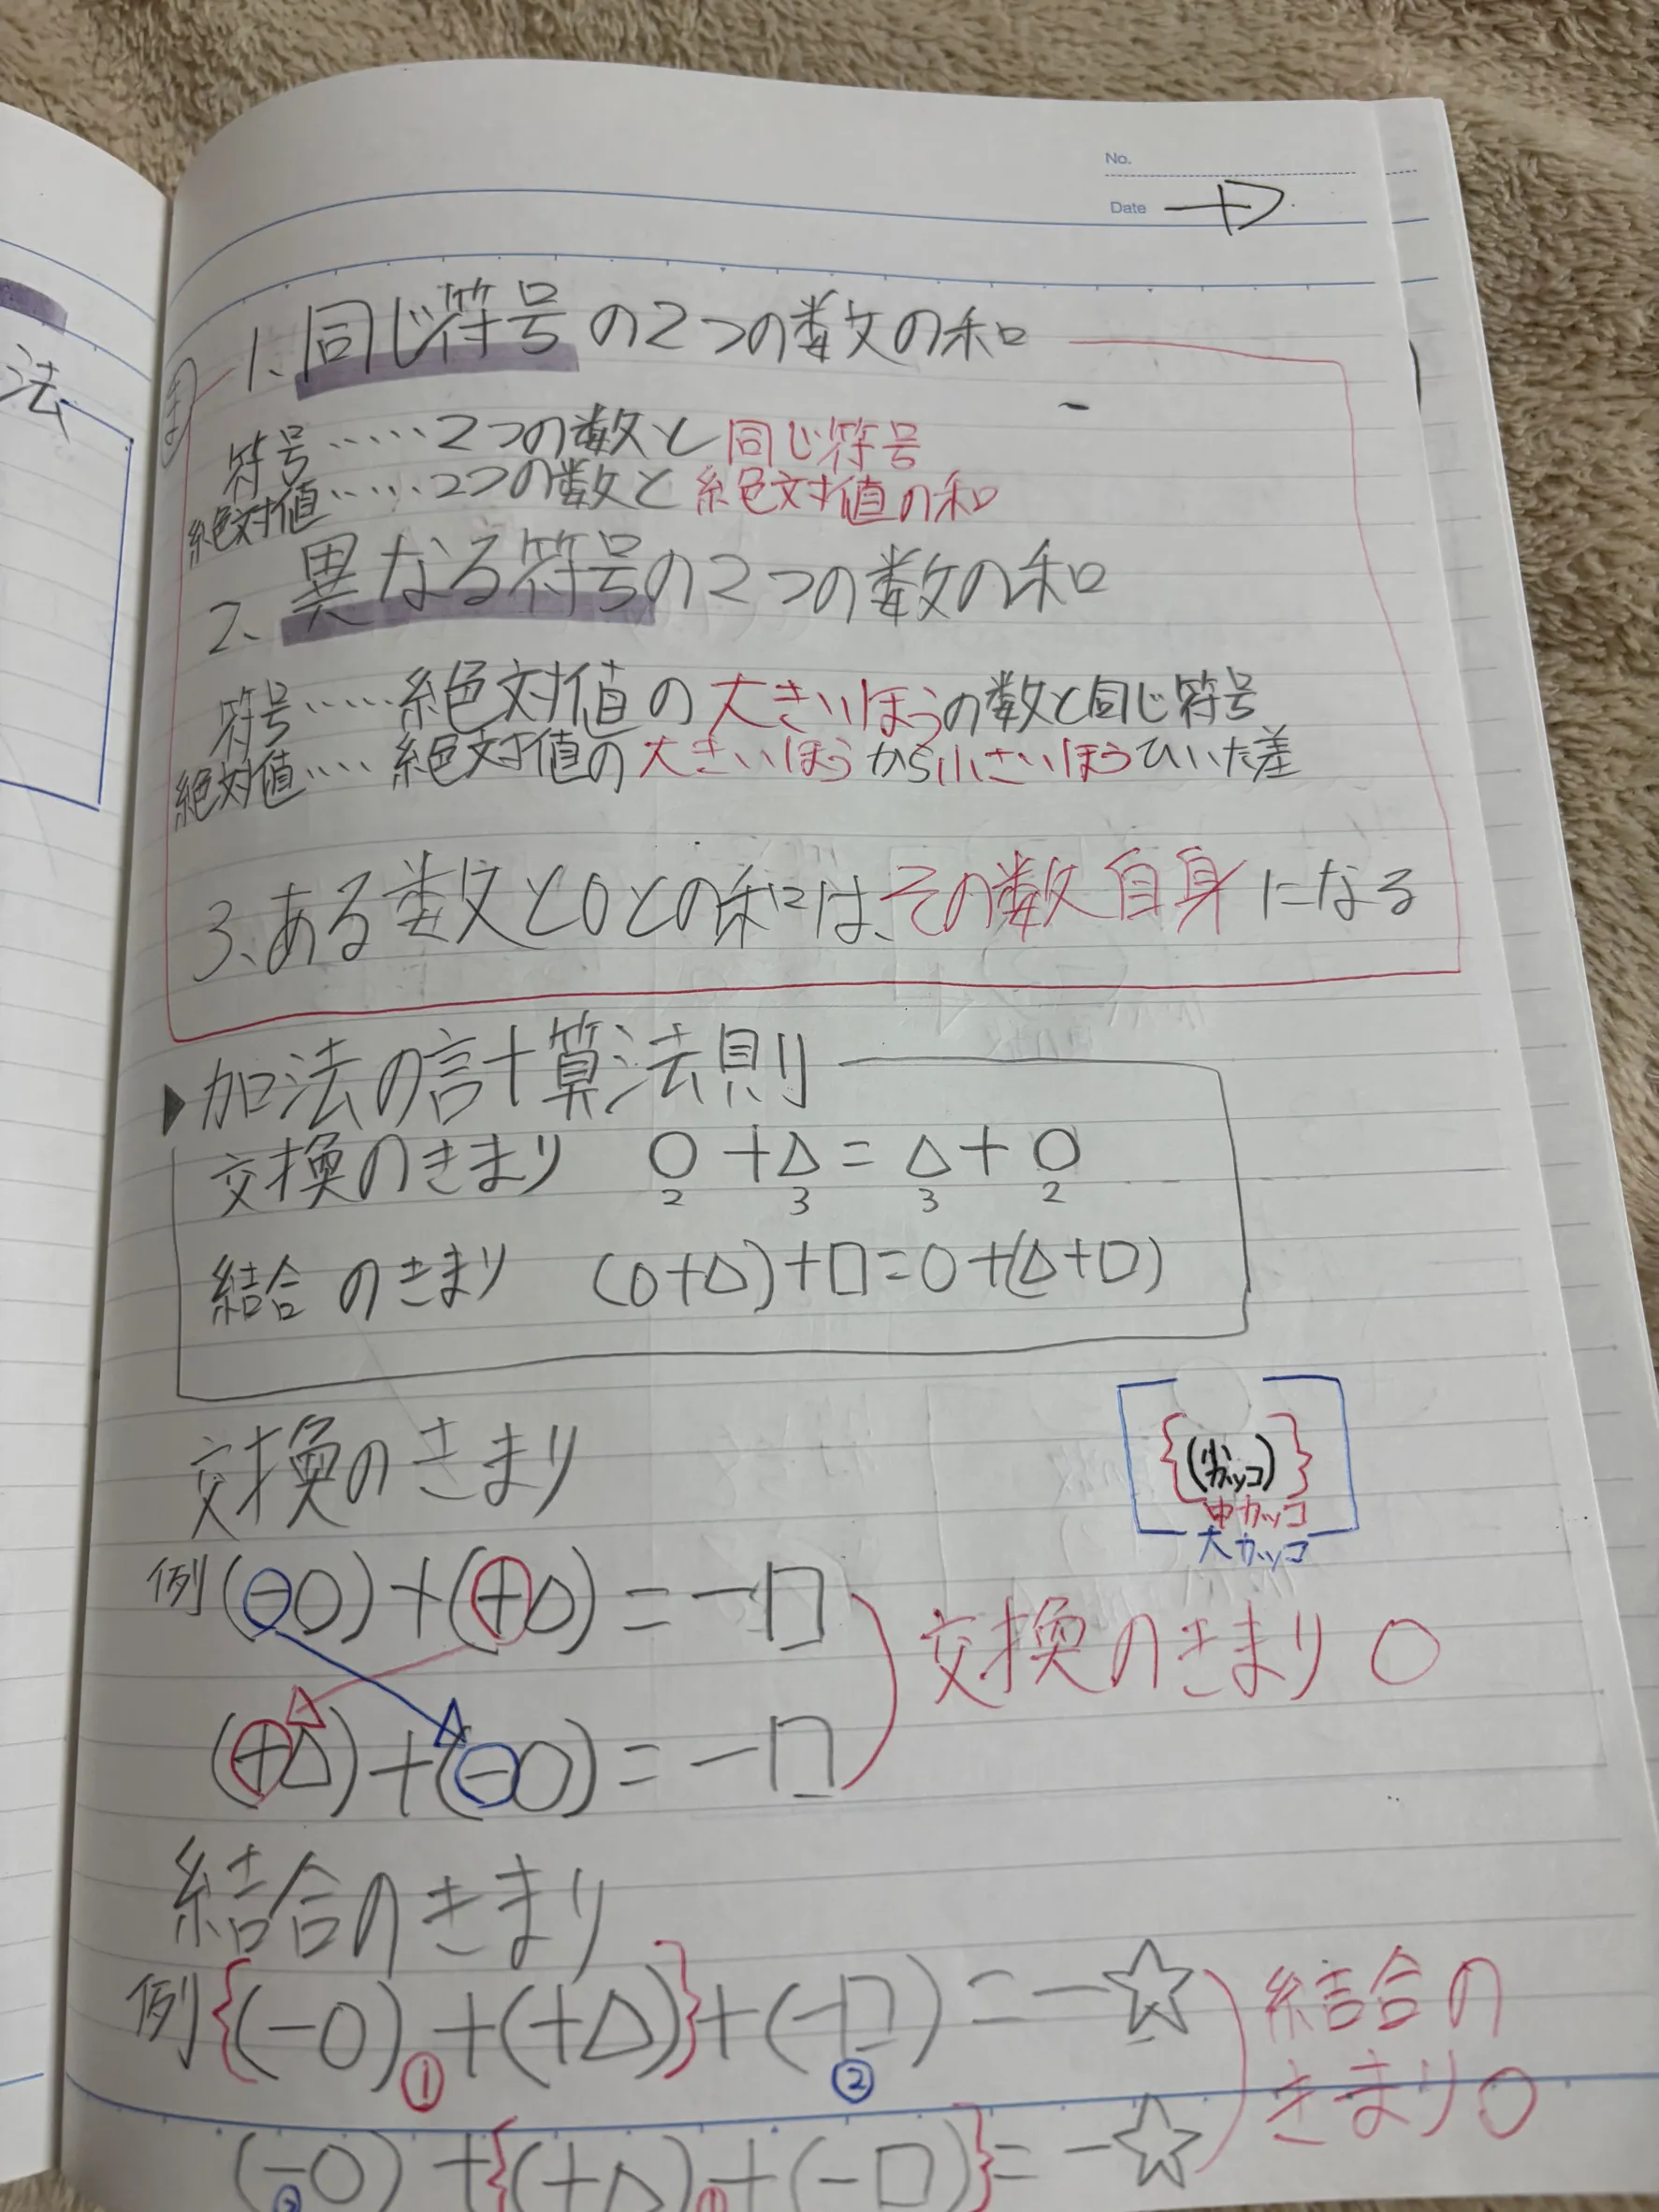 No.
Date
法
ま
1. 同じ符号の2つの数の和
符号……2つの数と同じ符号
絶対値……2つの数と絶対値の和
2、異なる符号の2つの数の和
符号……絶対値の大きいほうの数と同じ符号
絶対値…‥絶対値の大きいほうから小さいほうひいた差
3、ある数と0との和は、その数自身になる
▶加法の計算法則
交換のきまり ○+△=△+○
2 3 3 2
結合のきまり (○+△)+□=○+(△+□)
交換のきまり
{(小カッコ)}
中カッコ
大カッコ
例(-○)+(+△)=-□
交換のきまり○
(+△)+(-○)=-□
結合のきまり
例{(-○)+(+△)}+(-□)=-☆
① ②
結合の
きまり○
(-○)+{(+△)+(-□)}=-☆
② ①